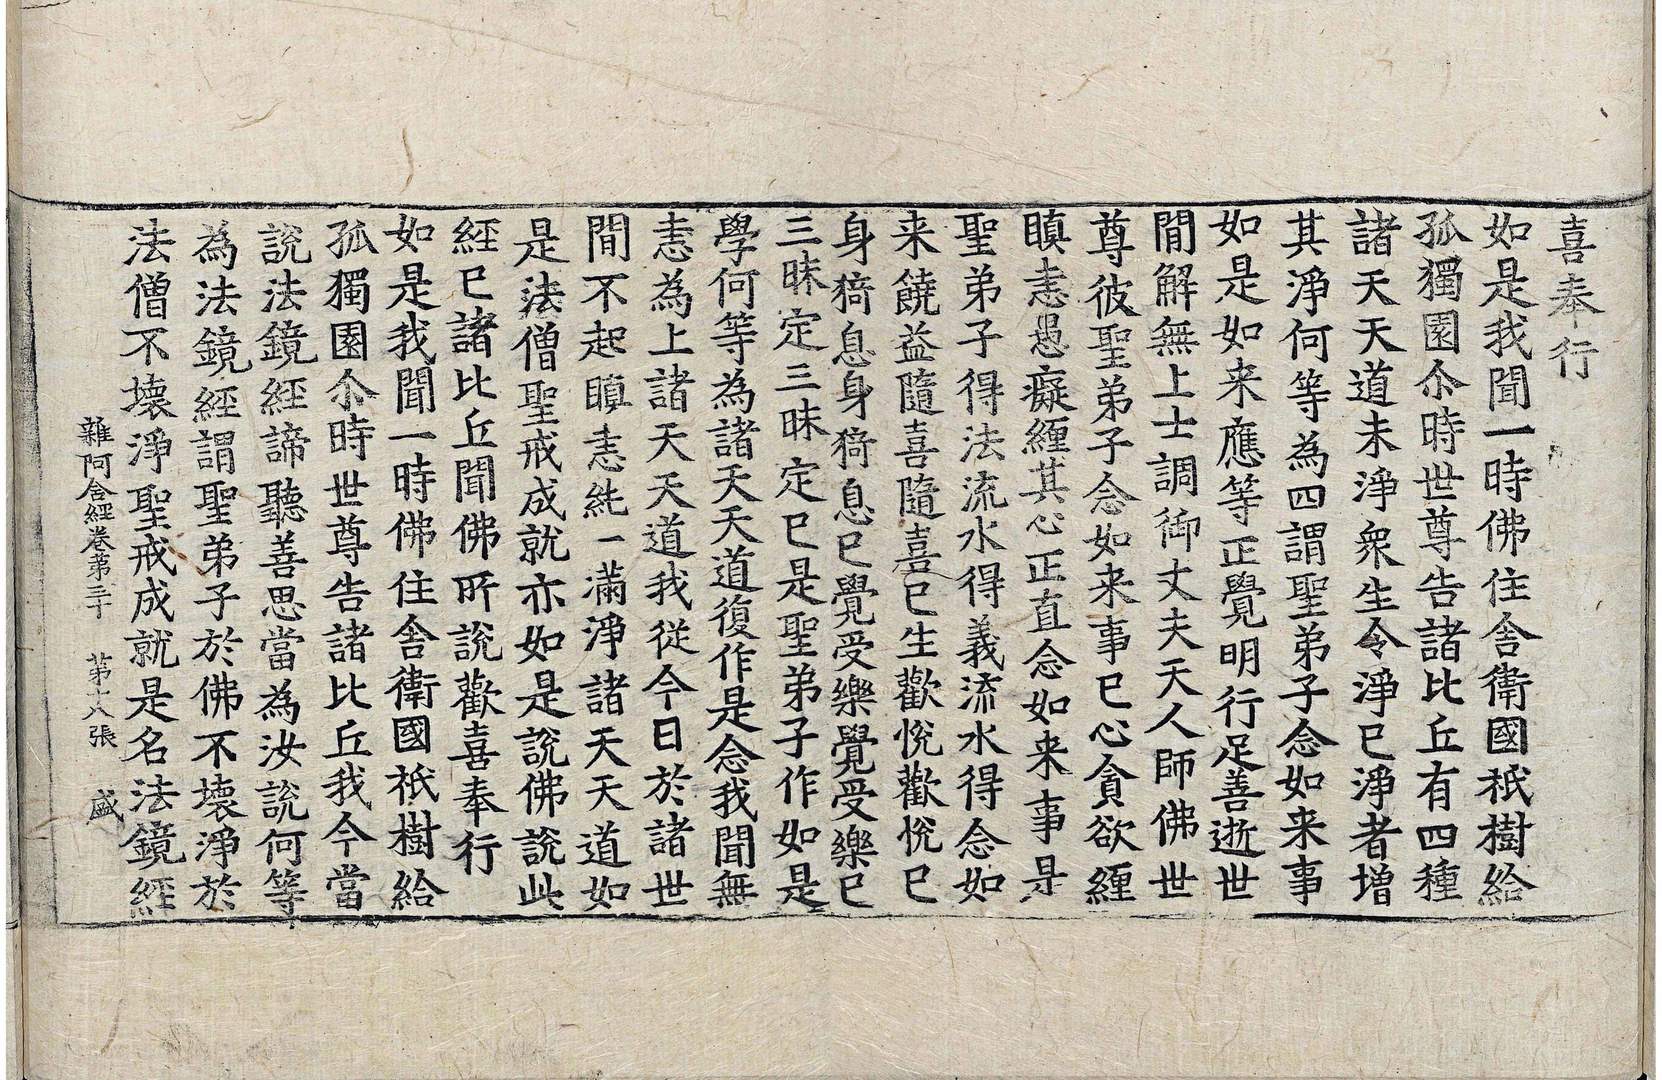 喜奉行
如是我聞一時佛住舍衛國祇樹給
孤獨園尒時世尊告諸比丘有四種
諸天天道未淨衆生令淨已淨者增
其淨何等為四謂聖弟子念如来事
如是如来應等正覺明行足善逝世
閒解無上士調御丈夫天人師佛世
尊彼聖弟子念如来事已心貪欲纏
瞋恚愚癡纏其心正直念如来事是
聖弟子得法流水得義流水得念如
来饒益隨喜隨喜已生歡悅歡悅已
身猗息身猗息已覺受樂覺受樂已
三昧定三昧定已是聖弟子作如是
學何等為諸天天道復作是念我聞無
恚為上諸天天道我從今日於諸世
閒不起瞋恚純一滿淨諸天天道如
是法僧聖戒成就亦如是說佛說此
經已諸比丘聞佛所說歡喜奉行
如是我聞一時佛住舍衛國祇樹給
孤獨園尒時世尊告諸比丘我今當
說法鏡經諦聽善思當為汝說何等
為法鏡經謂聖弟子於佛不壞淨於
法僧不壞淨聖戒成就是名法鏡經
雜阿含經卷第三十 第十八張 盛